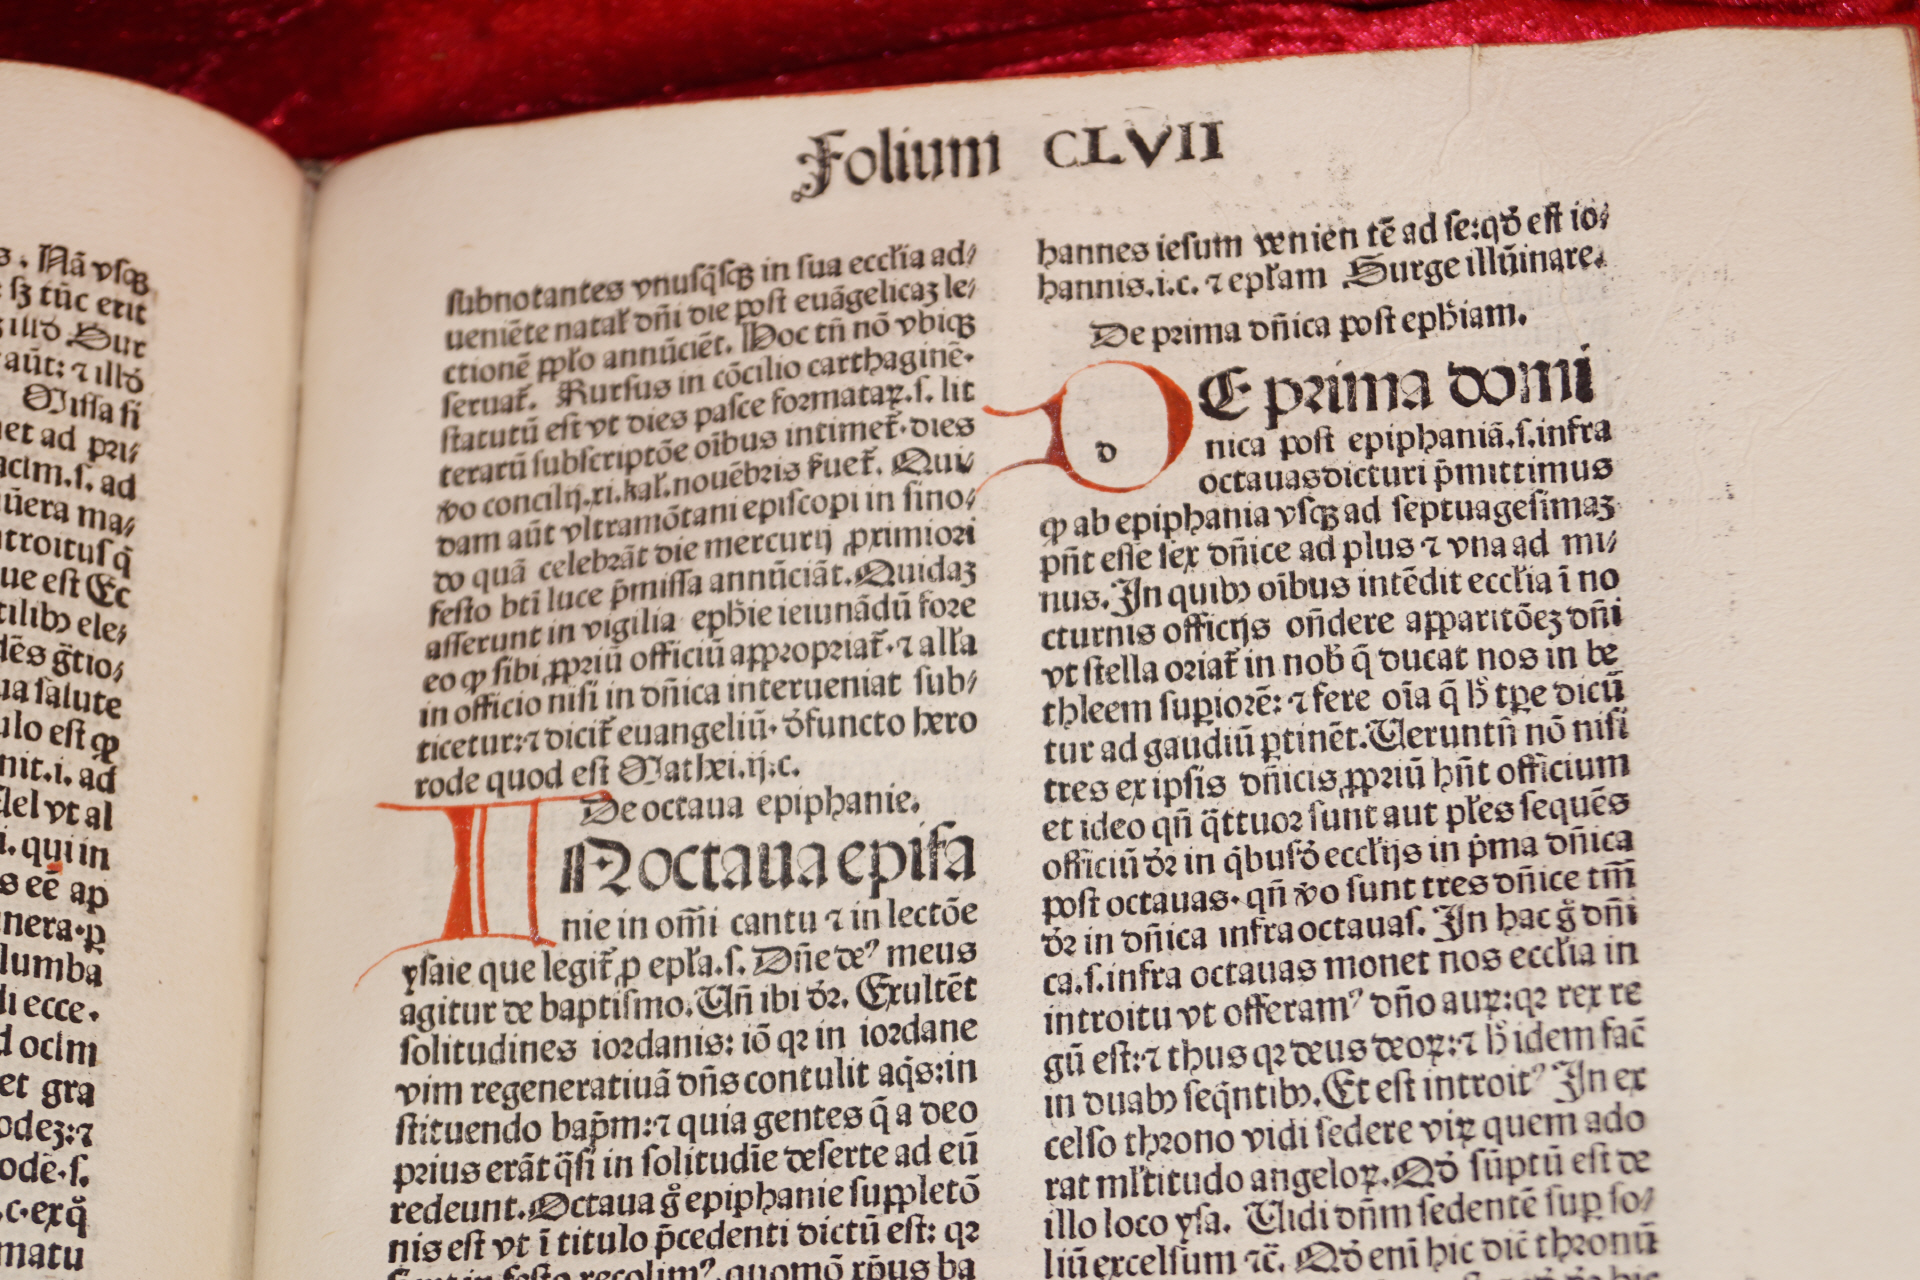 Folium CLVII
s. Nã vsqꝫ
sꝫ tũc erit
illđ Dur
aũt: ⁊ illđ
Missa si
et ad pri⸗
ad
ũera ma⸗
troitusq̃
ue est Ec
tilibꝰ ele⸗
dẽs g̃tio⸗
ua salute
ulo est ꝙ
nit.i. ad
lel vt al
i. qui in
s eẽ ap
nera·ꝑ
lumba
di ecce.
d ocim
et gra
odeꝫ:⁊
ode.s.
.c.ex
matu
subnotantes vnusq̃sqꝫ in sua eccłia ad⸗
ueniẽte natał dñi die post euãgelicaꝫ le⸗
ctionẽ ꝓpło annũciẽt. Hoc tñ nõ vbiqꝫ
seruat̃. Rursus in cõcilio carthaginẽ.
statutũ est vt dies pasce formataꝝ.s. lit
terarũ subscriptõe oĩbus intimet̃.dies
v̾o concilij.xi.kał.nouẽbris fuet̃. Qui⸗
dam aũt vltramõtani episcopi in sino⸗
do quã celebrãt die mercurij ꝓximiori
festo btĩ luce p̃missa annũciãt.Quidaꝫ
asserunt in vigilia ephie ieiunãdũ fore
eo ꝙ sibi ꝓpriũ officiũ appropriat̃.⁊ alla
in officio nisi in dñica interueniat sub⸗
ticetur:⁊ dicit̃ euangeliũ. đfuncto hero
rode quod est Mathei.ij.c.
De octaua epiphanie.
IN octaua epifa
nie in om̃i cantu ⁊ in lectõe
ysaie que legit̃ ꝓ epła.s. Dñe deꝰ meus
agitur de baptismo.Uñ ibi đꝛ. Exultẽt
solitudines iordanis: iõ qꝛ in iordane
vim regeneratiuã dñs contulit aq̃s:in
stituendo bap̃m:⁊ quia gentes q̃ a deo
prius erãt q̃si in solitudĩe deserte ad eũ
redeunt.Octaua g̊ epiphanie suppletõ
nis est vt ĩ titulo p̃cedenti dictũ est: qꝛ
festo recolimꝰ quomõ xp̃us ba
hannes iesum venien tẽ ad se:qđ est io⸗
hannis.i.c. ⁊ epłam Surge illũinare.
De prima dñica post ephiam.
d
DE prima domi
nica post epiphaniã.s.infra
octauas dicturi p̃mittimus
ꝙ ab epiphania vsqꝫ ad septuagesimaꝫ
pñt esse sex dñice ad plus ⁊ vna ad mi⸗
nus.In quibꝰ oĩbus intẽdit eccłia ĩ no
cturnis officijs oñdere apparitõeꝫ dñi
vt stella oriat̃ in nob̾ q̃ ducat nos in be
thleem supiorẽ: ⁊ fere oĩa q̃ h̾ tꝑe dicũ
tur ad gaudiũ ꝑtinẽt.Ueruntñ nõ nisi
tres ex ipsis dñicis ꝓpriũ hñt officium
et ideo qñ q̃ttuor sunt aut płes sequẽs
officiũ đꝛ in q̃busđ eccłijs in p̃ma dñica
post octauas. qñ v̾o sunt tres dñice tm̃
đꝛ in dñica infra octauas. In hac g̊ dñi
ca.s.infra octauas monet nos eccłia in
introitu vt offeramꝰ dño auꝝ:qꝛ rex re
gũ est:⁊ thus qꝛ deus deoꝝ:⁊ h̾ idem fac̃
in duabꝰ seq̃ntibꝰ.Et est introitꝰ In ex
celso throno vidi sedere viꝝ quem ado
rat mł̃titudo angeloꝝ.Qđ sũptũ est de
illo loco ysa. Uidi dñm sedentẽ sup so⸗
liũ excelsum ⁊c̃. Qđ enĩ hic dic̃ thronũ